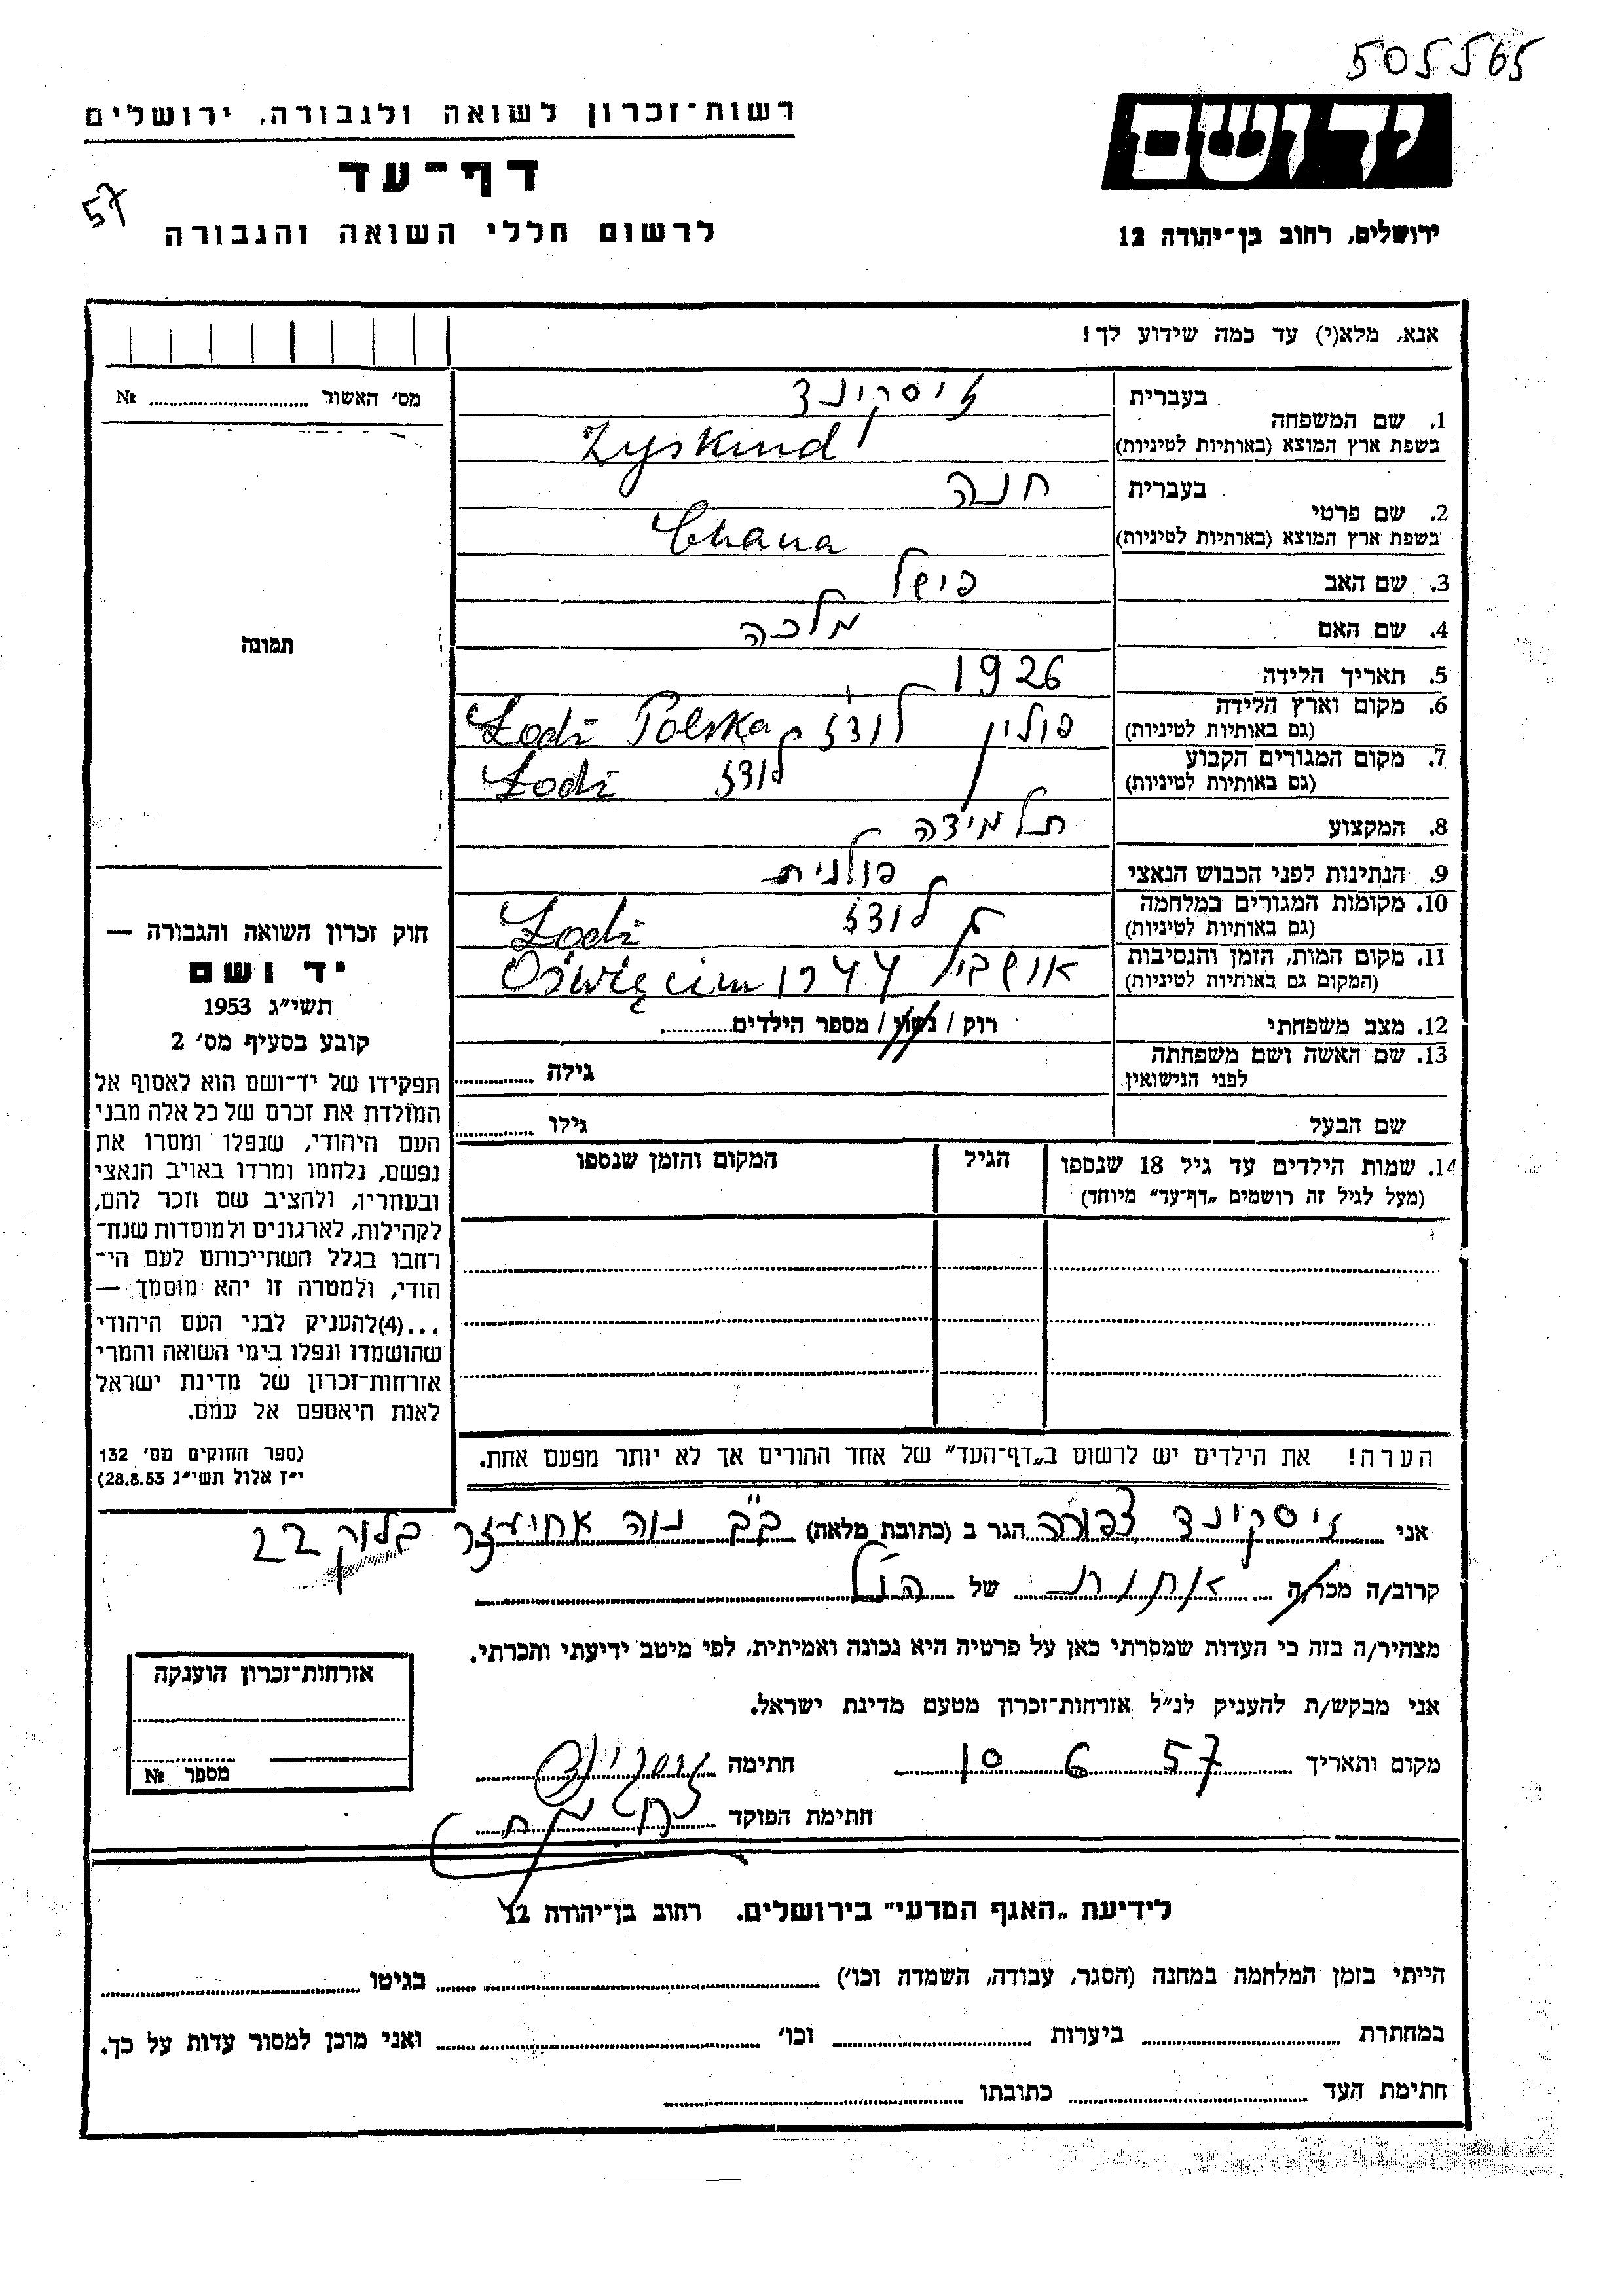 505565
יד ושם
ירושלים, רחוב בן־יהודה 12
רשות־זכרון לשואה ולגבורה, ירושלים
דף־עד
לרשום חללי השואה והגבורה
57
אנא, מלא(י) עד כמה שידוע לך!
1. שם המשפחה
בעברית זיסקינד
בשפת ארץ המוצא (באותיות לטיניות) Zyskind
2. שם פרטי
בעברית חנה
בשפת ארץ המוצא (באותיות לטיניות) Chana
3. שם האב פישל
4. שם האם מלכה
5. תאריך הלידה 1926
6. מקום וארץ הלידה פולין לודז Łodź Polska
(גם באותיות לטיניות)
7. מקום המגורים הקבוע לודז Łodź
(גם באותיות לטיניות)
8. המקצוע תלמידה
9. הנתינות לפני הכבוש הנאצי פולנית
10. מקומות המגורים במלחמה לודז Łodź
(גם באותיות לטיניות)
11. מקום המות, הזמן והנסיבות Oświęcim 1944
(המקום גם באותיות לטיניות)
12. מצב משפחתי רוק / נשוי / מספר הילדים
13. שם האשה ושם משפחתה
לפני הנישואין גילה
שם הבעל גילו
14. שמות הילדים עד גיל 18 שנספו
(מעל לגיל זה רושמים „דף־עד” מיוחד)
הגיל
המקום והזמן שנספו
הערה! את הילדים יש לרשום ב„דף־העד” של אחד ההורים אך לא יותר מפעם אחת.
מס' האשור №
תמונה
חוק זכרון השואה והגבורה —
יד ושם
תשי״ג 1953
קובע בסעיף מס' 2
תפקידו של יד־ושם הוא לאסוף אל
המולדת את זכרם של כל אלה מבני
העם היהודי, שנפלו ומסרו את
נפשם, נלחמו ומרדו באויב הנאצי
ובעוזריו, ולהציב שם וזכר להם,
לקהילות, לארגונים ולמוסדות שנח־
רחבו בגלל השתייכותם לעם הי־
הודי, ולמטרה זו יהא מוסמך —
...(4)להעניק לבני העם היהודי
שהושמדו ונפלו בימי השואה והמרי
אזרחות־זכרון של מדינת ישראל
לאות היאספם אל עמם.
(ספר החוקים מס' 132
י״ז אלול תשי״ג 28.8.53)
אני זיסקינד צפורה הגר ב (כתובת מלאה) ב״ב נוה אחיעזר בלוק 22
קרוב/ה מכר/ה אחות של הנ״ל
מצהיר/ה בזה כי העדות שמסרתי כאן על פרטיה היא נכונה ואמיתית, לפי מיטב ידיעתי והכרתי.
אני מבקש/ת להעניק לנ״ל אזרחות־זכרון מטעם מדינת ישראל.
מקום ותאריך 10 6 57 חתימה זיסקינד
חתימת הפוקד
אזרחות־זכרון הוענקה
מספר №
לידיעת „האגף המדעי” בירושלים. רחוב בן־יהודה 12
הייתי בזמן המלחמה במחנה (הסגר, עבודה, השמדה וכו') בגיטו
במחתרת ביערות וכו' ואני מוכן למסור עדות על כך.
חתימת העד כתובתו